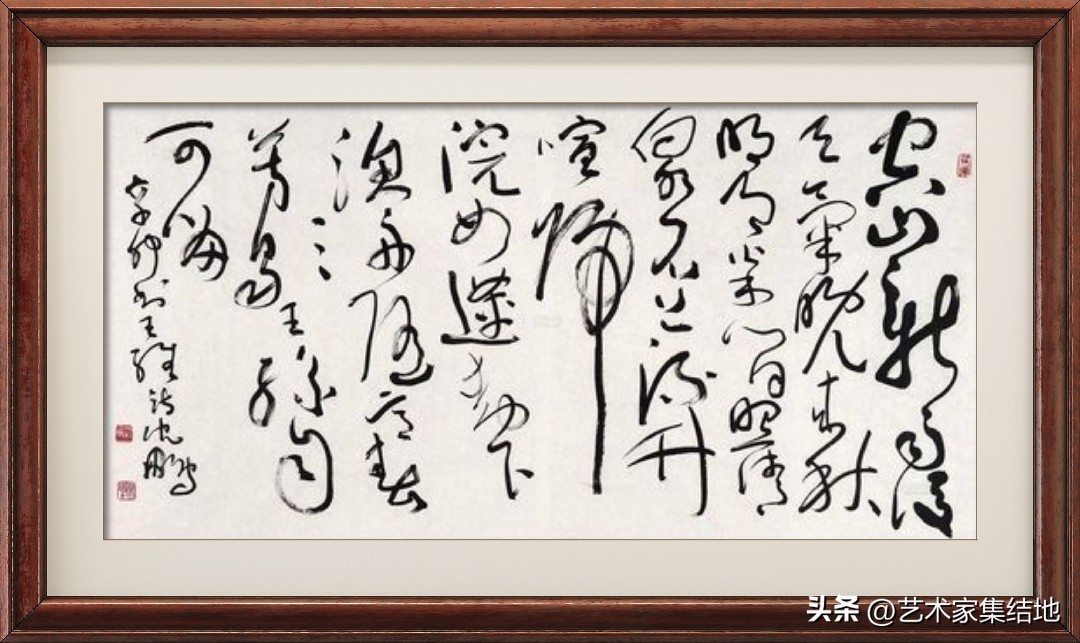 空山新雨後
天氣晚来秋
明月松间照清
泉石上流竹
喧歸
浣女蓮動下
漁舟随意春
芳歇王孫自
可留
书王維诗沈鹏
头条 @艺术家集结地